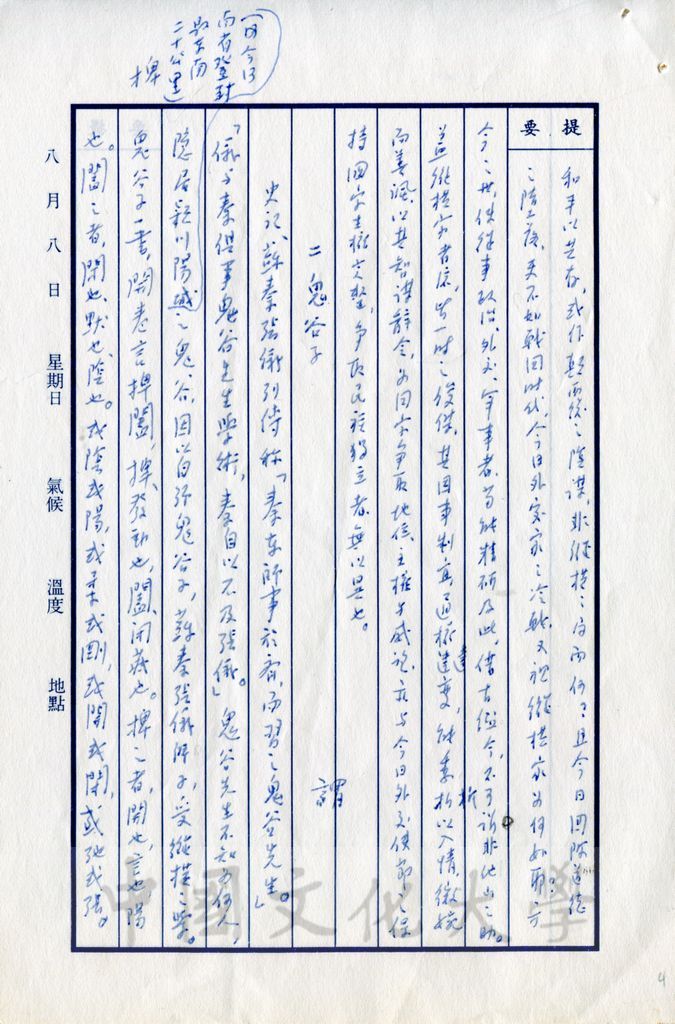 提要
和平以共存,或作顛覆之陰謀,非縱橫之術而何?且今日國際道德
之墮落,更不如戰國時代,今日外交家之冷戰,又視縱橫家為何如耶?方
今之世,供從事政治、外交、軍事者,苟能精研及此,借古鑑今,不可謂非他山之助。
蓋縱橫家者流,皆一時之俊傑,其因事制宜,通權達變,能委折以入情,微婉
而善諷,以其知謀辭令,為國家爭取地位、主權與威望,亦與今日外交使節之保
持國家主權完整,爭取民族獨立者,無以異也。
二 鬼谷子
史記、蘇秦張儀列傳稱「秦東師事於齊,而習之鬼谷先生。」謂
「儀與秦俱事鬼谷先生學術,秦自以不及張儀。」鬼谷先生不知為何人,
隱居潁川陽城之鬼谷,因以自號鬼谷子,蘇秦張儀師之,受縱橫之學。
鬼谷子一書,開卷言捭闔,捭、發動也,闔、閉藏也。捭之者,開也,言也,陽
也。闔之者,閉也,默也,陰也。或陰或陽,或柔或剛,或開或閉,或弛或張。
(即今河
南省登封
縣東南
二十公里)
捭
八月八日 星期日 氣候 溫度 地點
中國文化大學
4